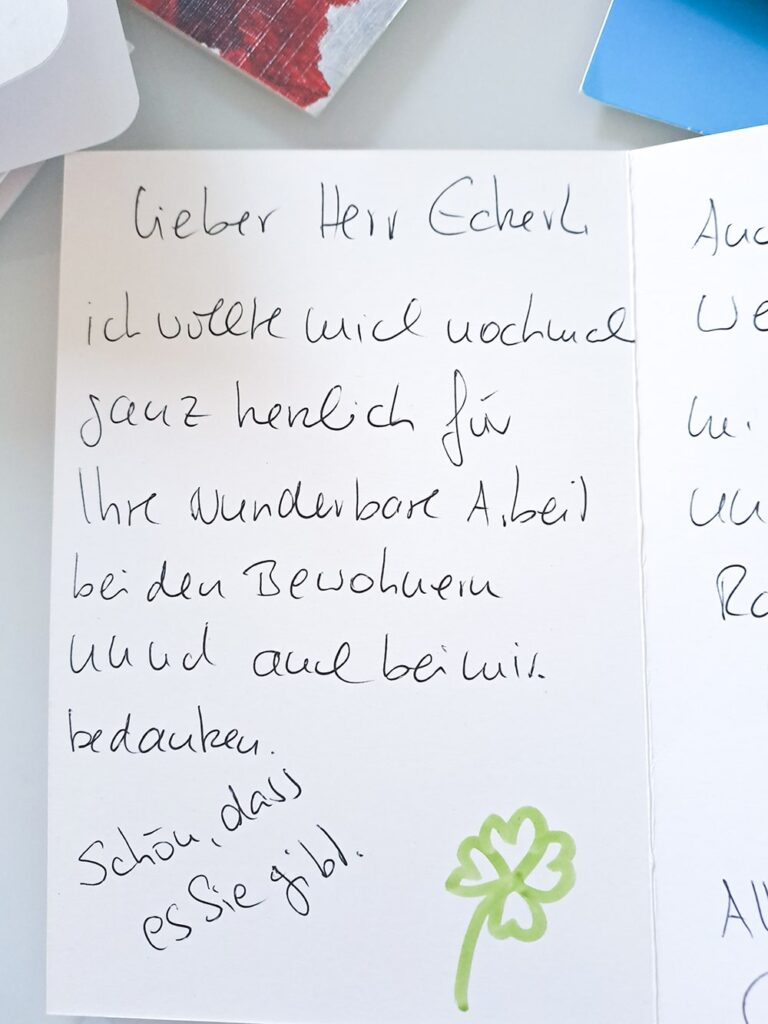 Lieber Herr Eckerl
ich wollte mich nochmal
ganz herzlich für
Ihre wunderbare Arbeit
bei den Bewohnern
unnd auch bei mir.
bedanken.
Schön, dass
es Sie gibt.